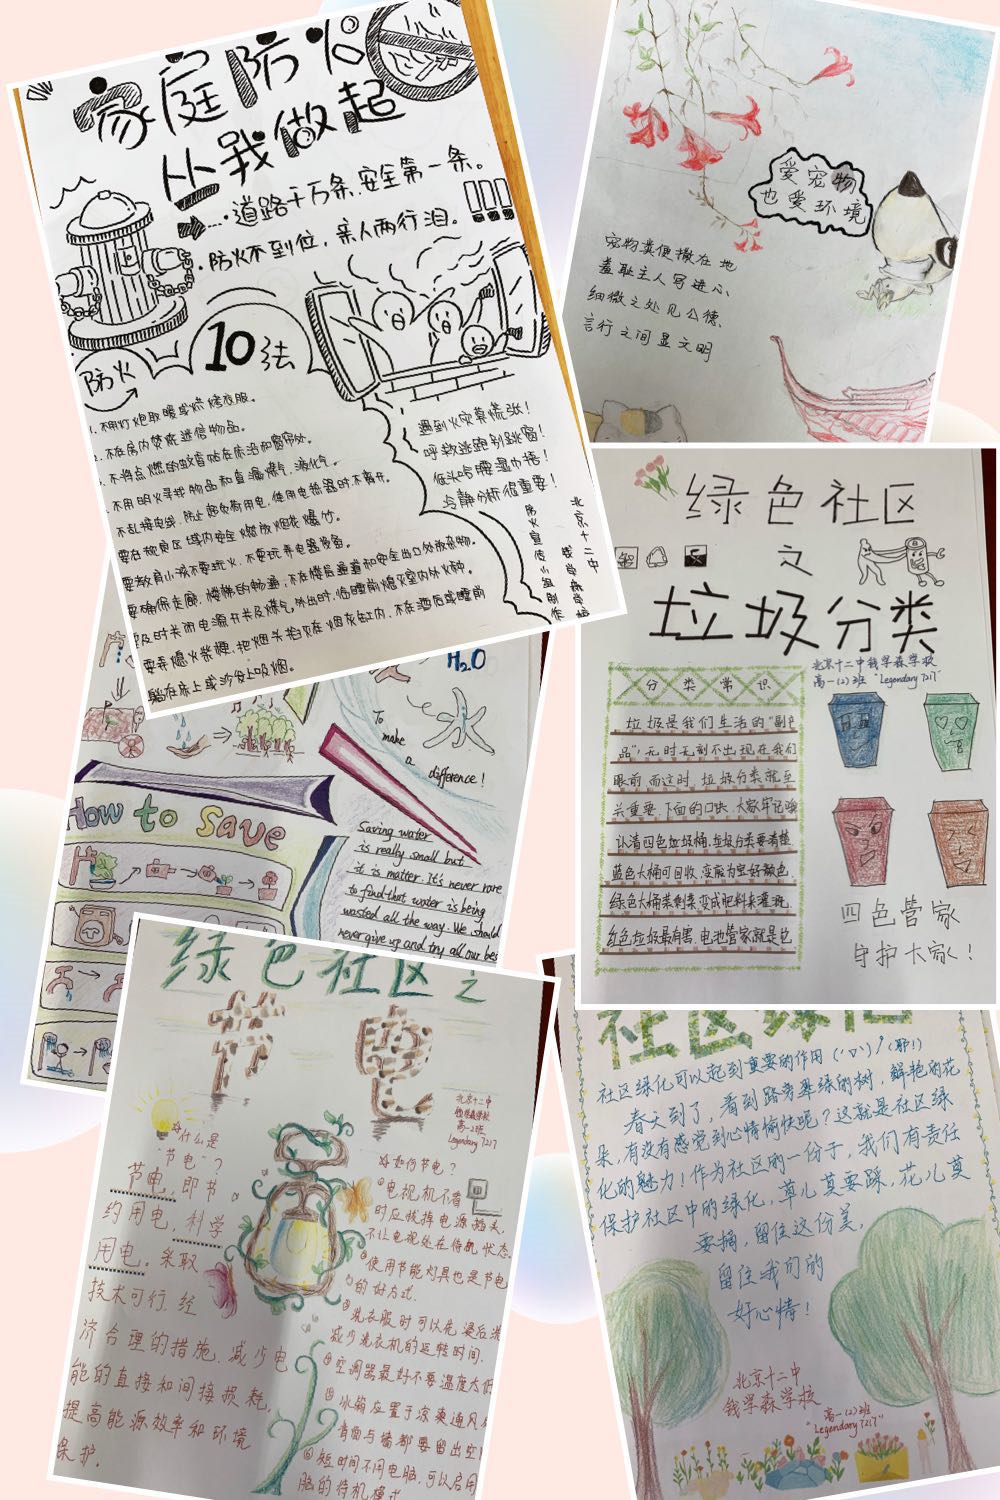 家庭防火
从我做起
道路千万条,安全第一条。
防火不到位,亲人两行泪。
防火
10法
1.不用灯炮取暖或烘烤衣服。
不在房内焚烧迷信物品。
不将点燃的蚊香帖在床沿和窗帘处。
不用明火寻找物品和查漏煤气、液化气。
不乱接电线,防止超负荷用电,使用电热器时不离开。
要在规定区域内安全燃放烟花爆竹。
要教育小孩不要玩火,不要玩弄电器设备。
要确保走廊、楼梯的畅通,不在楼层通道和安全出口处放杂物。
及时关闭电源开关及煤气,外出时、临睡前熄灭室内外火种。
要弄熄火柴梗,把烟头掐灭在烟灰缸内,不在酒后或睡前
躺在床上或沙发上吸烟。
遇到火灾莫慌张!
呼救逃跑别跳窗!
低头哈腰湿巾捂!
冷静分析很重要!
北京十二中
防火宣传小组制作
爱宠物
也爱环境
宠物粪便撒在地
羞耻主人写进心
细微之处见公德
言行之间显文明
绿色社区
之
垃圾分类
北京十二中钱学森学校
高一(2)班 "Legendary 7217"
分类常识
垃圾是我们生活的"副色
品",无时无刻不出现在我们
眼前,而这时,垃圾分类就至
关重要,下面的口诀,大家牢记哦
认清四色垃圾桶,垃圾分类要清楚
蓝色大桶可回收,变废为宝好颜色
绿色大桶装剩菜,变成肥料来灌溉
红色垃圾最有害,电池管家就是它
四色管家
守护大家!
H₂O
水
To
make
a
difference!
How to Save
Saving water
is really small but
it is matter. It's never rare
to find that water is being
wasted all the way. We should
never give up and try all our bes
绿色社区之
节电
北京十二中
钱学森学校
高一2班
Legendary 7217
什么是
"节电"?
节电,即节
约用电,科学
用电。采取
技术可行、经
济合理的措施,减少电
能的直接和间接损耗,
提高能源效率和环境
保护。
如何节电?
①电视机不看
时应拔掉电源插头,
不让电视处在待机状态。
②使用节能灯具也是节电
的好方式。
③洗衣服时可以先浸后洗
减少洗衣机的运转时间。
④空调器最好不要温度太低
⑤冰箱应置于凉爽通风处
背面与墙都要留出空
⑥短时间不用电脑,可以启用
脑的待机模式
社区绿化
社区绿化可以起到重要的作用 (耶!)
春天到了,看到路旁翠绿的树,鲜艳的花
朵,有没有感觉到心情愉快呢?这就是社区绿
化的魅力!作为社区的一份子,我们有责任
保护社区中的绿化,草儿莫要踩,花儿莫
要摘,留住这份美,
留住我们的
好心情!
北京十二中
钱学森学校
高一(2)班
"Legendary 7217"